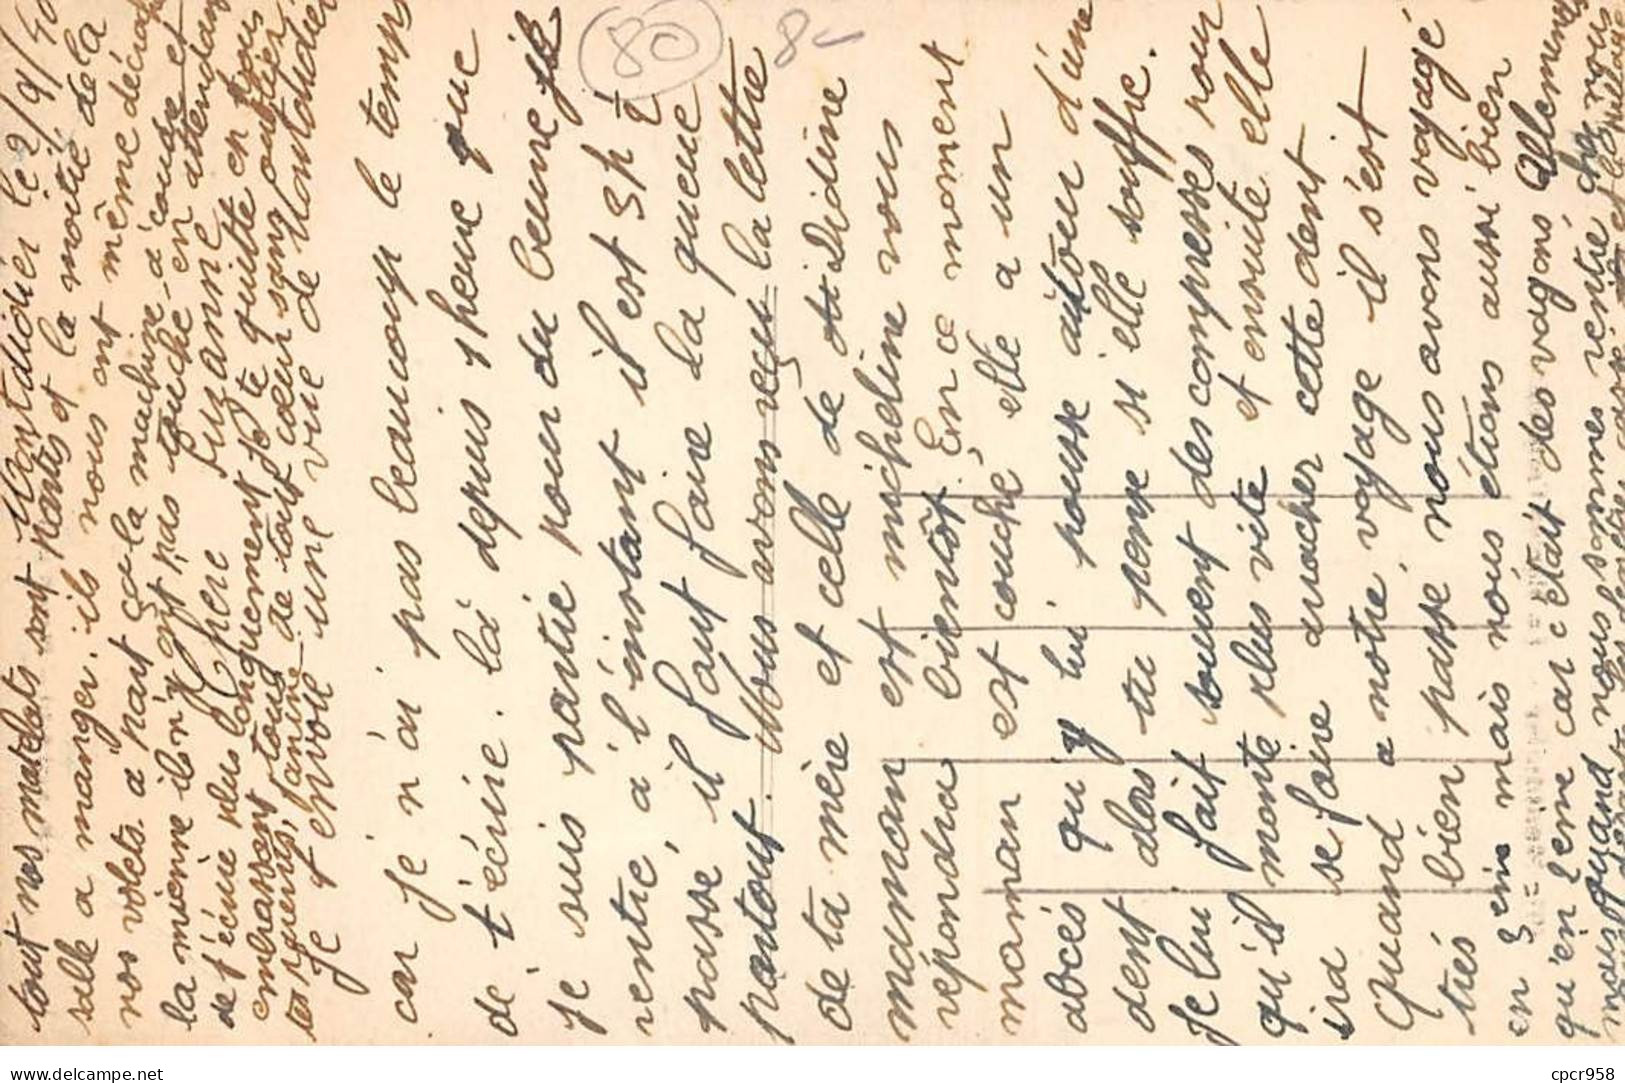 Montdidier le 2/9/40
tout nos matelats sont partis et la moitié de la
salle a manger. ils nous ont même déciroué
nos volets. a part ça la machine a couse et
la mienne ils n'y ont pas touché en attendant
Chère Suzanne
de t'écrire plus longuement je te quitte en vous
embrassant tous de tout cœur sans oublier
tes parents, Janine
Je t'envoie une vue de Montdidier
car je n'ai pas beaucoup le temps
de t'écrire. là depuis 1 heure que
je suis partie pour du beurre je
rentré, à l'instant il est 3h ½
passé, il faut faire la queue
partout. Nous avons reçus la lettre
de ta mère et celle de Didine
maman est micheline vous
répondra bientôt. En ce moment
maman est couché elle a un
abcés qui lui pousse autour d'une
dent alors tu pense si elle souffre.
Je lui fait souvent des compresses pour
qu'il monte plus vite et ensuite elle
ira se faire arracher cette dent
Quand a notre voyage il s'est
trés bien passé, nous avons voyagé
en 3eme mais nous étions aussi bien
qu'en 2eme car c'était des wagons Allemands
mais quand nous sommes rentré chez nous
80
8-
cpcr958